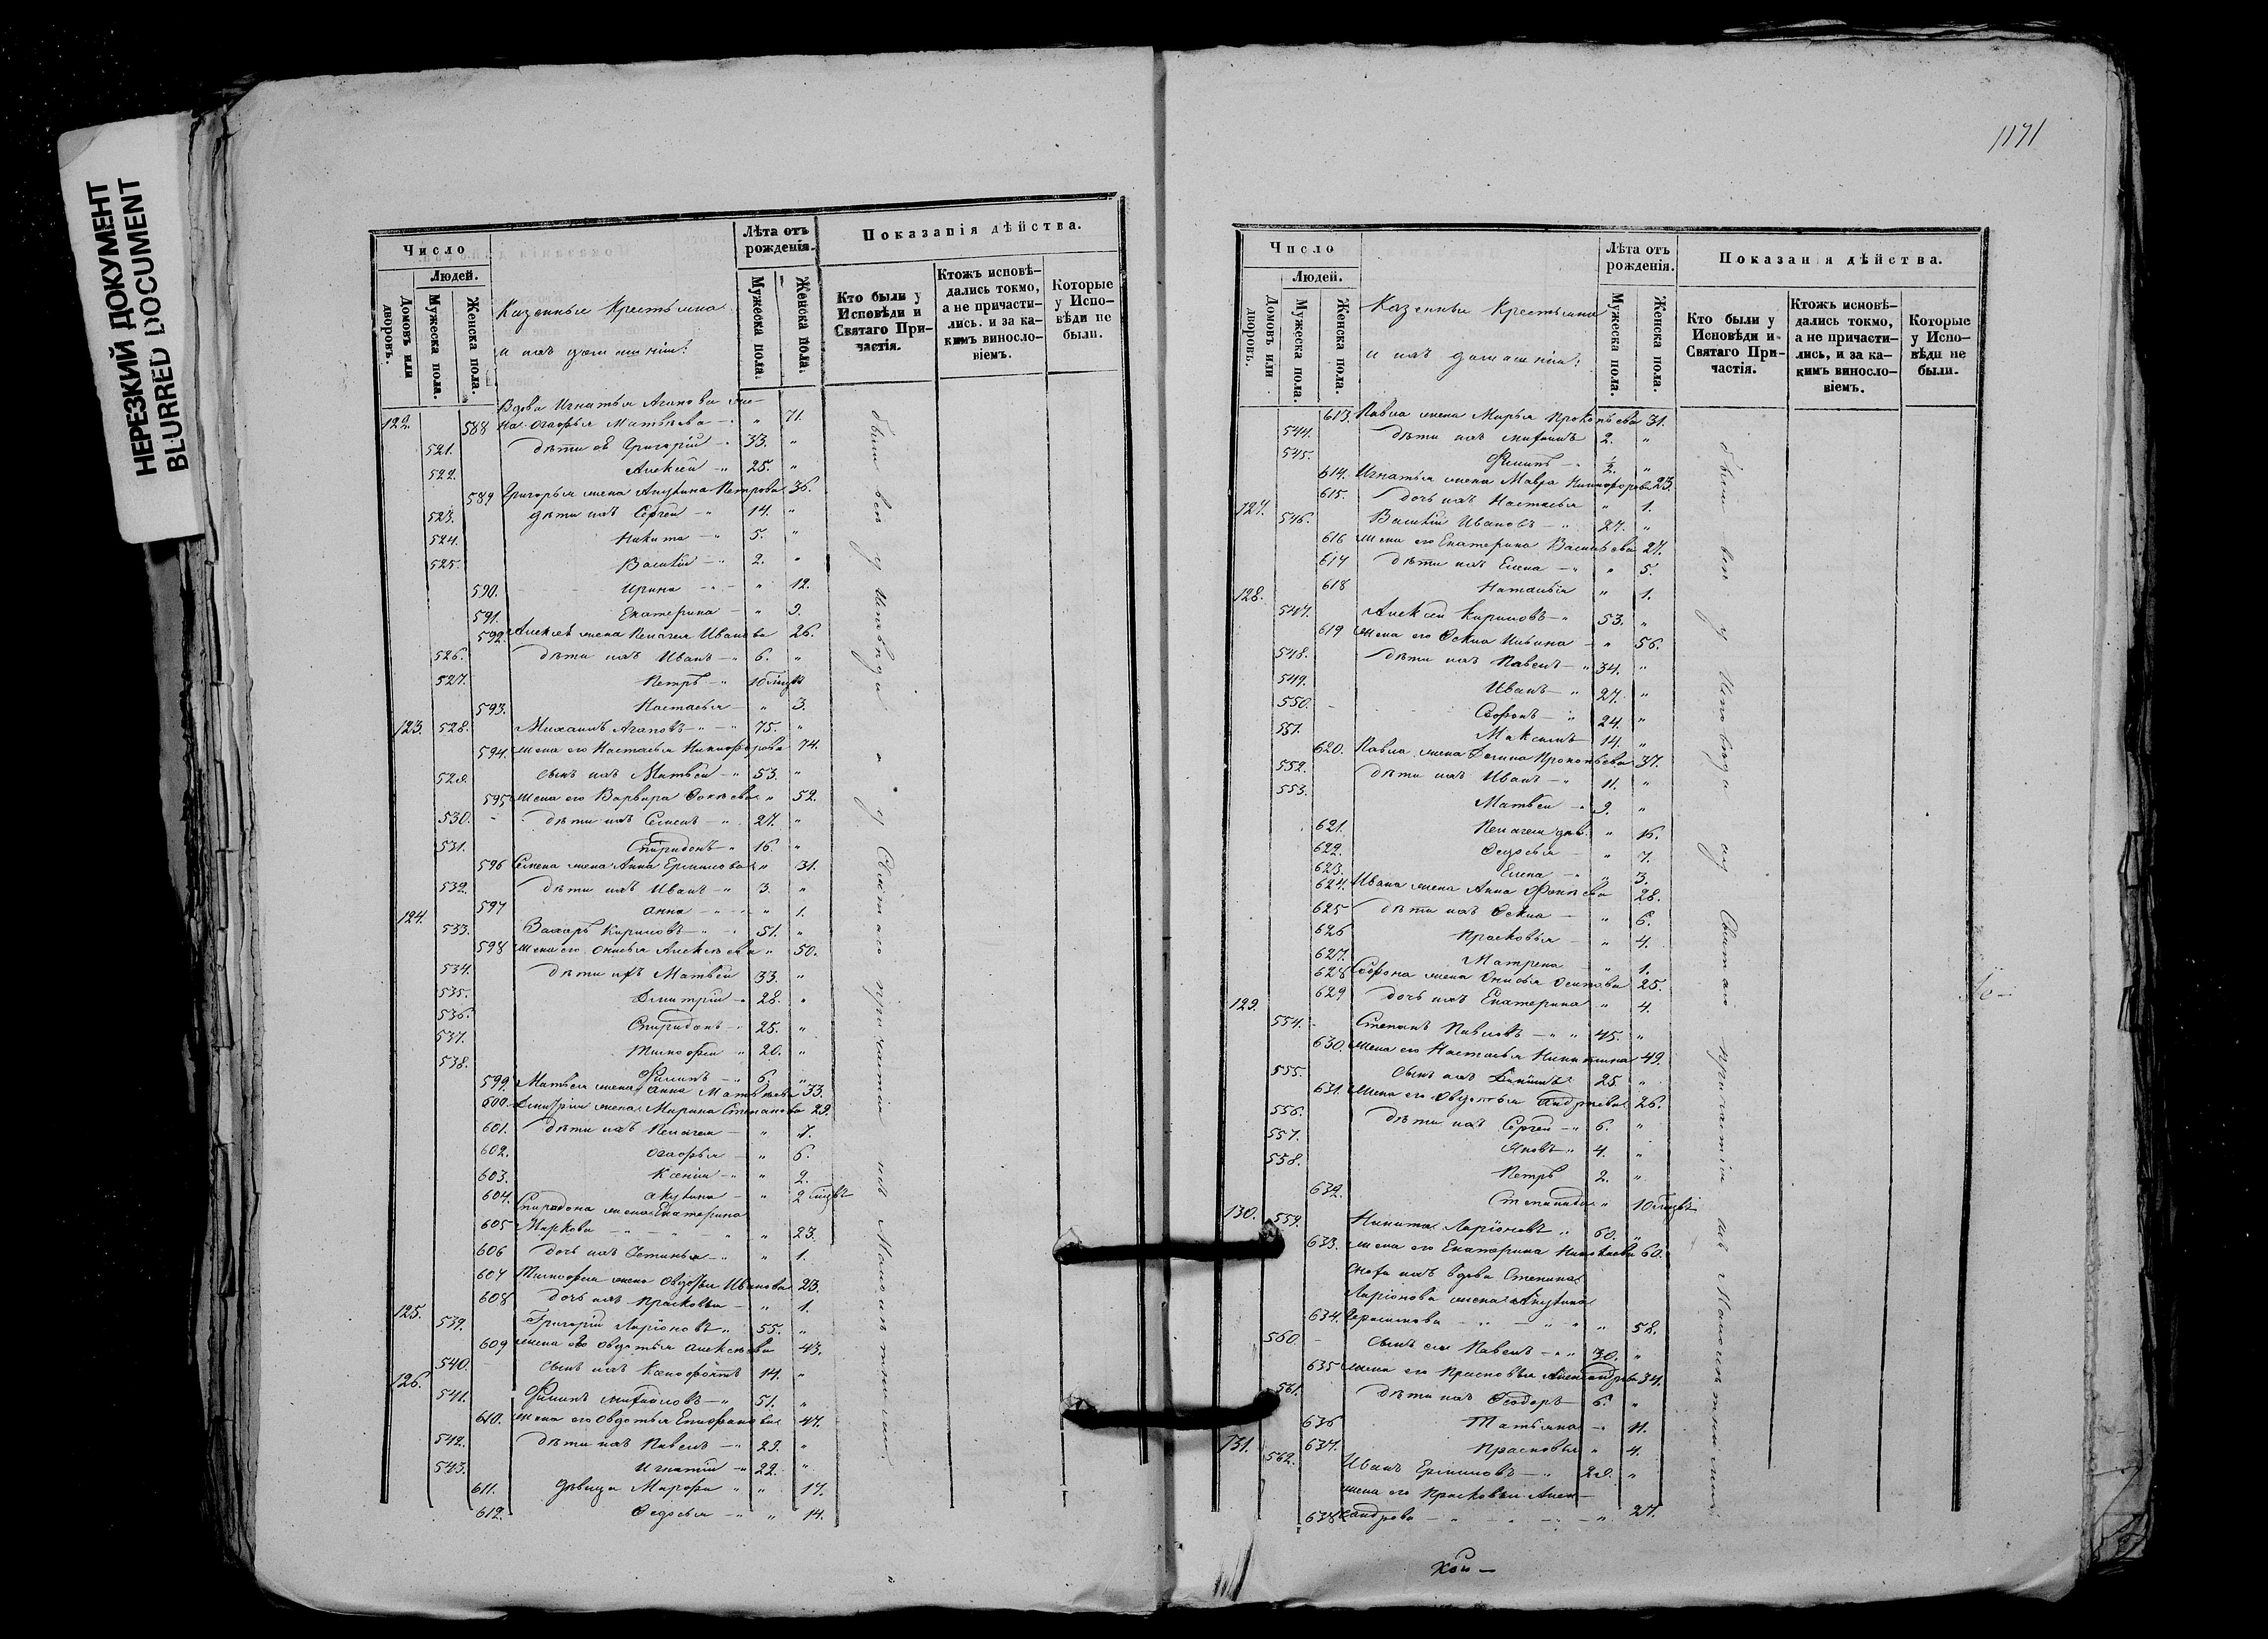 НЕРЕЗКИЙ ДОКУМЕНТ
BLURRED DOCUMENT
1171
Число
Людей.
Домовъ или дворовъ.
Мужеска пола.
Женска пола.
Казенныя Крестьяна
и ихъ домашніи:
Лѣта отъ рожденія.
Мужеска пола.
Женска пола.
Показанія дѣйства.
Кто были у Исповѣди и Святаго Причастія.
Ктожъ исповѣдались токмо, а не причастились. и за какимъ винословіемъ.
Которые у Исповѣди не были.
Вдова Игнатья Агапова же-
122. 588 на Агафья Матвѣева - " 71.
521. дѣти её Григорій - 33. "
522. Алексѣй - " 25. "
589 Григорья жена Акулина Петрова 36.
523. дѣти ихъ Сергей - " 14. "
524. Никита - " 5. "
525. Василій - " 2. "
590. Ирина - " 12.
591. Екатерина - " 9.
592. Алексѣя жена Пелагея Иванова 26.
526. дѣти ихъ Иванъ - " 6. "
527. Петръ - " 10
593. Настасья - " 3.
123. 528. Михаилъ Агаповъ - " 75. "
594. жена его Настасья Никифорова 74.
529. сынъ ихъ Матвѣй - " 53. "
595 жена его Варвара " 52.
530. дѣти ихъ Семенъ - " 27. "
531. Спиридонъ - " 16. "
596 Семена жена Анна Ермилова " 31.
532. дѣти ихъ Иванъ - " 3. "
597 Анна - " 1.
124. 533. Захаръ Кириловъ - " 51. "
598 жена его Анисья Алексѣева " 50.
534. дѣти ихъ Матвѣй 33. "
535. Дмитрій - " 28. "
536. Спиридонъ - " 25. "
537. Тимофей " 20. "
538. Филипъ - " 6. "
599. Матвея жена Анна Матвѣева 33.
600. Дмитрія жена Марина Степанова 29.
601. дѣти ихъ Пелагея - " 7.
602. Агафья - " 6.
603. Ксенія - " " 2.
604. Акулина - " 2
Спиридона жена Екатерина
605 Маркова - " - " - " 23.
606 дочь ихъ Устинья - " 1.
607 Тимофея жена Овдотья Иванова 23.
608 дочь ихъ Прасковья - " 1.
125. 539. Григорій Ларіоновъ " 55. "
609 жена его Овдотья Алексѣева 43.
540. сынъ ихъ Ксенофонтъ 14. "
126. 541. Филипъ Михайловъ - " 51. "
610. жена его Овдотья Епифанова 47.
542. дѣти ихъ Павелъ - " 29. "
543. Игнатій - " 22. "
611. дѣвица Марфа " " 17.
612. Федосья - " " 14.
были всѣ у Исповѣди и у Святаго причастія
Число
Людей.
Домовъ или дворовъ.
Мужеска пола.
Женска пола.
Казенныя Крестьяна
и ихъ домашніи:
Лѣта отъ рожденія.
Мужеска пола.
Женска пола.
Показанія дѣйства.
Кто были у Исповѣди и Святаго Причастія.
Ктожъ исповѣдались токмо, а не причастились, и за какимъ винословіемъ.
Которые у Исповѣди не были.
613. Павла жена Марья Прокопьева 31.
544. дѣти ихъ Михаилъ 2. "
545. Филипъ - " ½. "
614. Игнатья жена Мавра Никифорова 23.
615. дочь ихъ Настасья " 1.
127. 546. Василій Ивановъ - " 27. "
616 жена его Екатерина Васильева 27.
617 дѣти ихъ Елена - " " 5.
618 Наталія " 1.
128. 547. Алексѣй Кириловъ - " 53. "
619 жена его - " 56.
548. дѣти ихъ Павелъ - " 34. "
549. Иванъ - " 27. "
550. Софонъ - " 24. "
551. Максимъ - 14. "
620. Павла жена Прокопьева 37.
552. дѣти ихъ Иванъ - " 11. "
553. Матвѣй - 9. "
621. Пелагея дѣв. " 16.
622. Федосья - " 7.
623. Елена - " " 3.
624. Ивана жена Анна 28.
625 дѣти ихъ - " 6.
626 Прасковья - " 4.
627. Матрена " 1.
628 Софона жена Анисья Осипова 25.
629 дочь ихъ Екатерина " 4.
129. 554. Степанъ Павловъ - " " 45. "
630. жена его Настасья Никитина 49.
555. сынъ ихъ 25. "
631. жена его Овдотья Андреева 26.
556. дѣти ихъ Сергей - " 6. "
557. Яковъ - " 4. "
558. Петръ 2. "
632. Степанида " 10
130. 559. Никита Ларіоновъ " 60. "
633. жена его Екатерина 60.
сноха ихъ вдова Степана
Ларіонова жена Акулина
634. Герасимова - " - " " 58.
560 сынъ ея Павелъ - " 30. "
635 жена его Прасковья Александрова 34.
561. дѣти ихъ Ѳеодоръ - 6. "
636 Татьяна - " 11.
637. Прасковья " 4.
131. 562. Иванъ Ермиловъ - " 29. "
жена его Прасковья Алек-
638 сандрова - " - " - " 27.
были всѣ у Исповѣди и у Святаго причастія